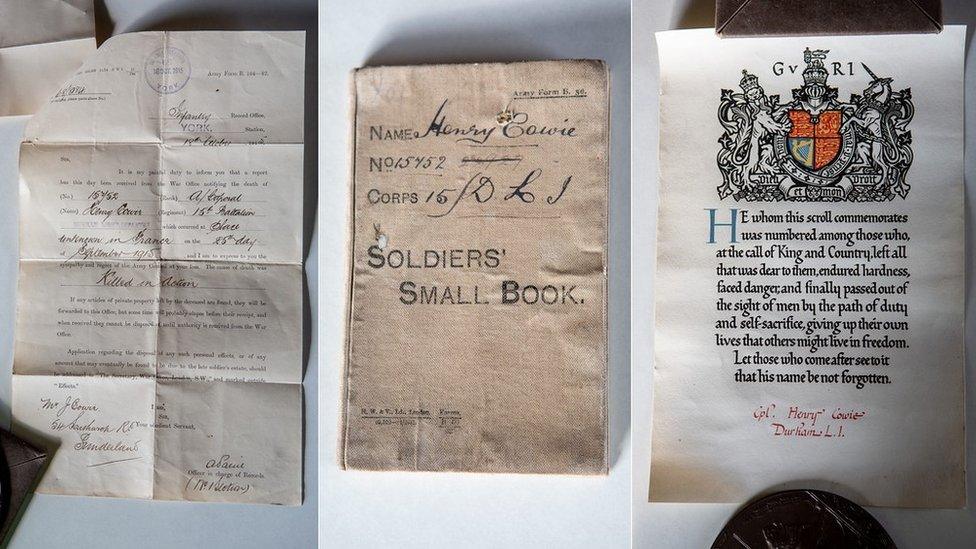 YORK
Army Form B. 104—82.
Infantry Record Office,
YORK. Station,
Sir,
It is my painful duty to inform you that a report
has this day been received from the War Office notifying the death of
(No.) 15752 (Rank) A/Corporal
(Name) Henry Cower (Regiment) 15th Battalion
which occurred at Place
unknown in France on the 25th day
of September 1915 and I am to express to you the
sympathy and regret of the Army Council at your loss. The cause of death was
Killed in Action
If any articles of private property left by the deceased are found, they will be
forwarded to this Office, but some time will probably elapse before their receipt, and
when received they cannot be disposed of until authority is received from the War
Office.
Application regarding the disposal of any such personal effects, or of any
amount that may eventually be found to be due to the late soldier's estate, should
be addressed to "The Secretary, War Office, London, S.W.," and marked outside
"Effects."
I am,
Sir,
Your obedient Servant,
Mr J. Cower
Sunderland
Officer in charge of Records.
(No 1 Section)
Army Form B. 50.
NAME Henry Cowie
No 15752
CORPS 15/D L I
SOLDIERS'
SMALL BOOK.
H. W. & V., Ld., London.
Forms,
G V R I
DIEU ET MON DROIT
HE whom this scroll commemorates
was numbered among those who,
at the call of King and Country, left all
that was dear to them, endured hardness,
faced danger, and finally passed out of
the sight of men by the path of duty
and self-sacrifice, giving up their own
lives that others might live in freedom.
Let those who come after see to it
that his name be not forgotten.
Cpl. Henry Cowie
Durham L.I.